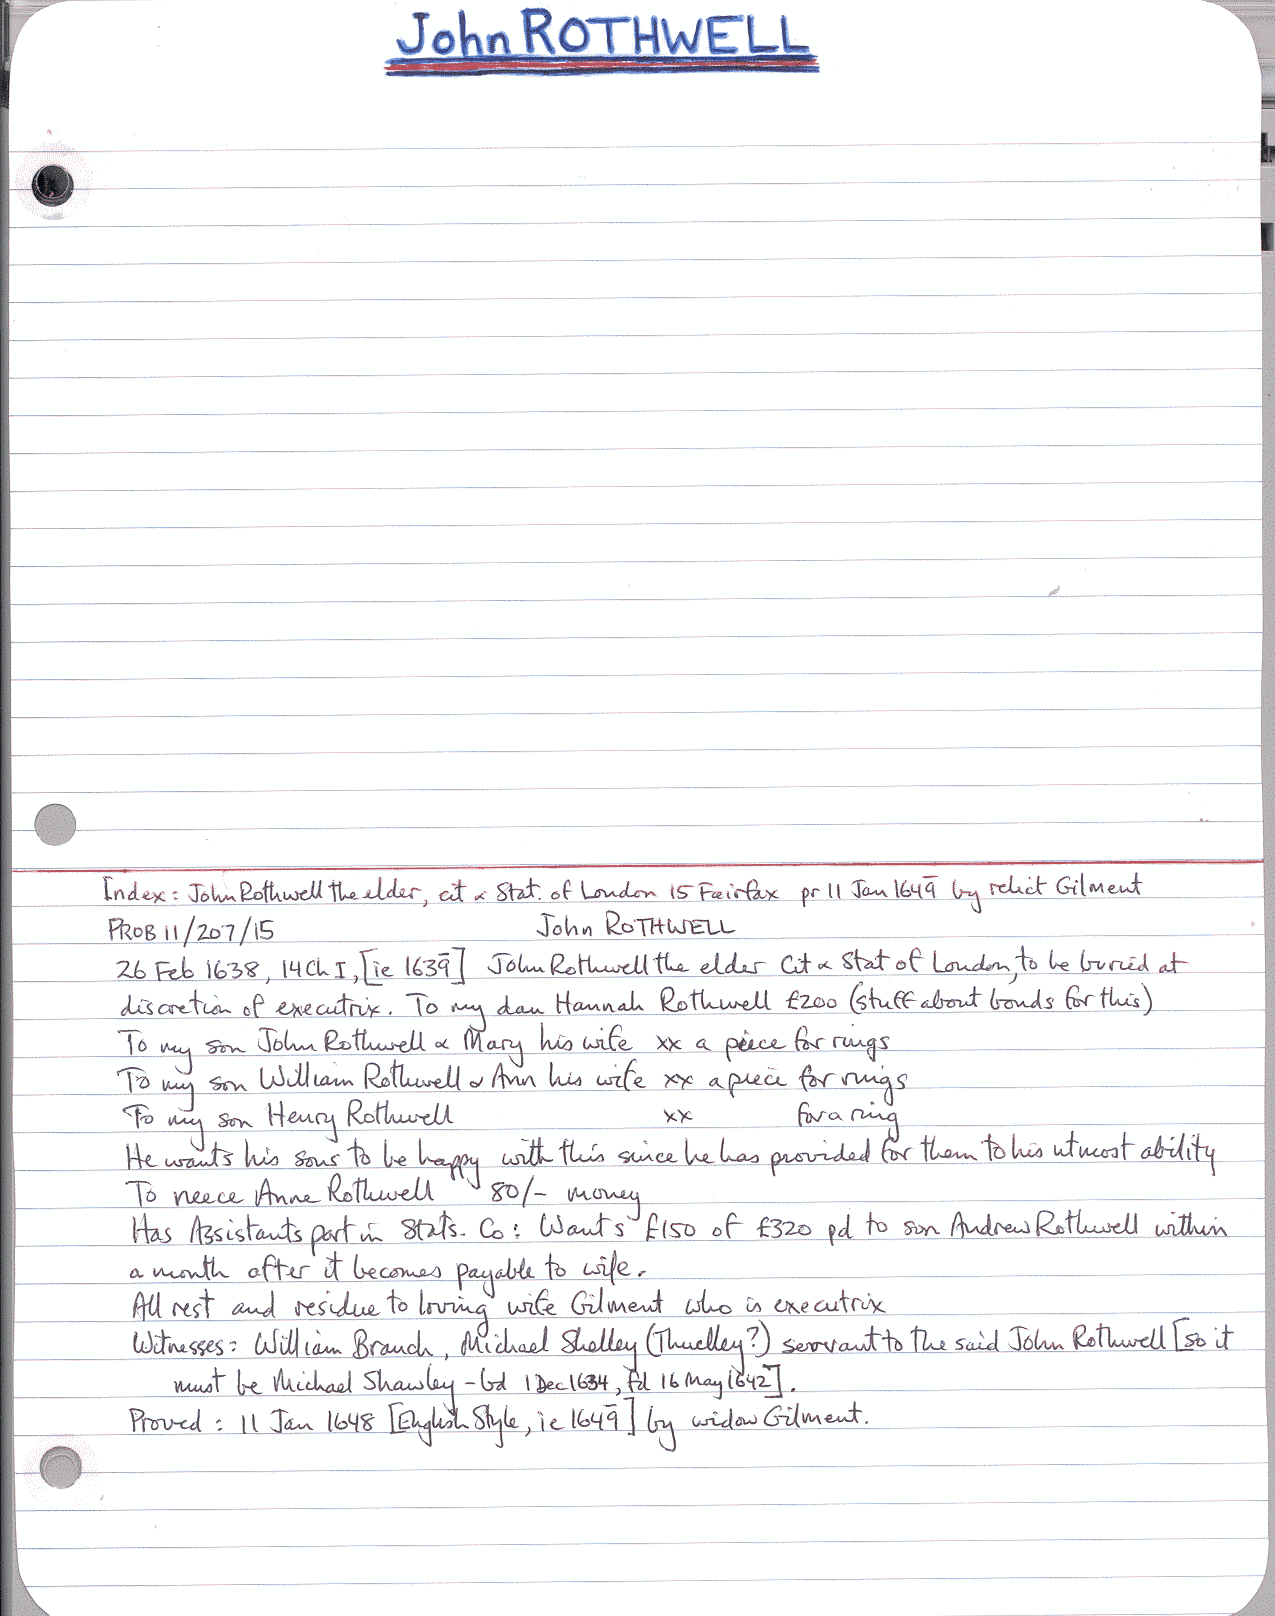 John ROTHWELL
Index: John Rothwell the elder, cit & Stat. of London 15 Fairfax pr 11 Jan 1649̄ by relict Gilment
PROB 11/207/15 John ROTHWELL
26 Feb 1638, 14 Ch I, [ie 1639̄] John Rothwell the elder Cit & Stat of London, to be buried at
discretion of executrix. To my dau Hannah Rothwell £200 (stuff about bonds for this)
To my son John Rothwell & Mary his wife xx a piece for rings
To my son William Rothwell & Ann his wife xx a piece for rings
To my son Henry Rothwell xx for a ring
He wants his sons to be happy with this since he has provided for them to his utmost ability
To neece Anne Rothwell 80/- money
Has Assistants part in Stats. Co: Wants £150 of £320 pd to son Andrew Rothwell within
a month after it becomes payable to wife.
All rest and residue to loving wife Gilment who is executrix
Witnesses: William Branch, Michael Shelley (Thuelley?) servant to the said John Rothwell [so it
must be Michael Shawley - bd 1 Dec 1634, fd 16 May 1642].
Proved: 11 Jan 1648 [English Style, ie 1649̄] by widow Gilment.